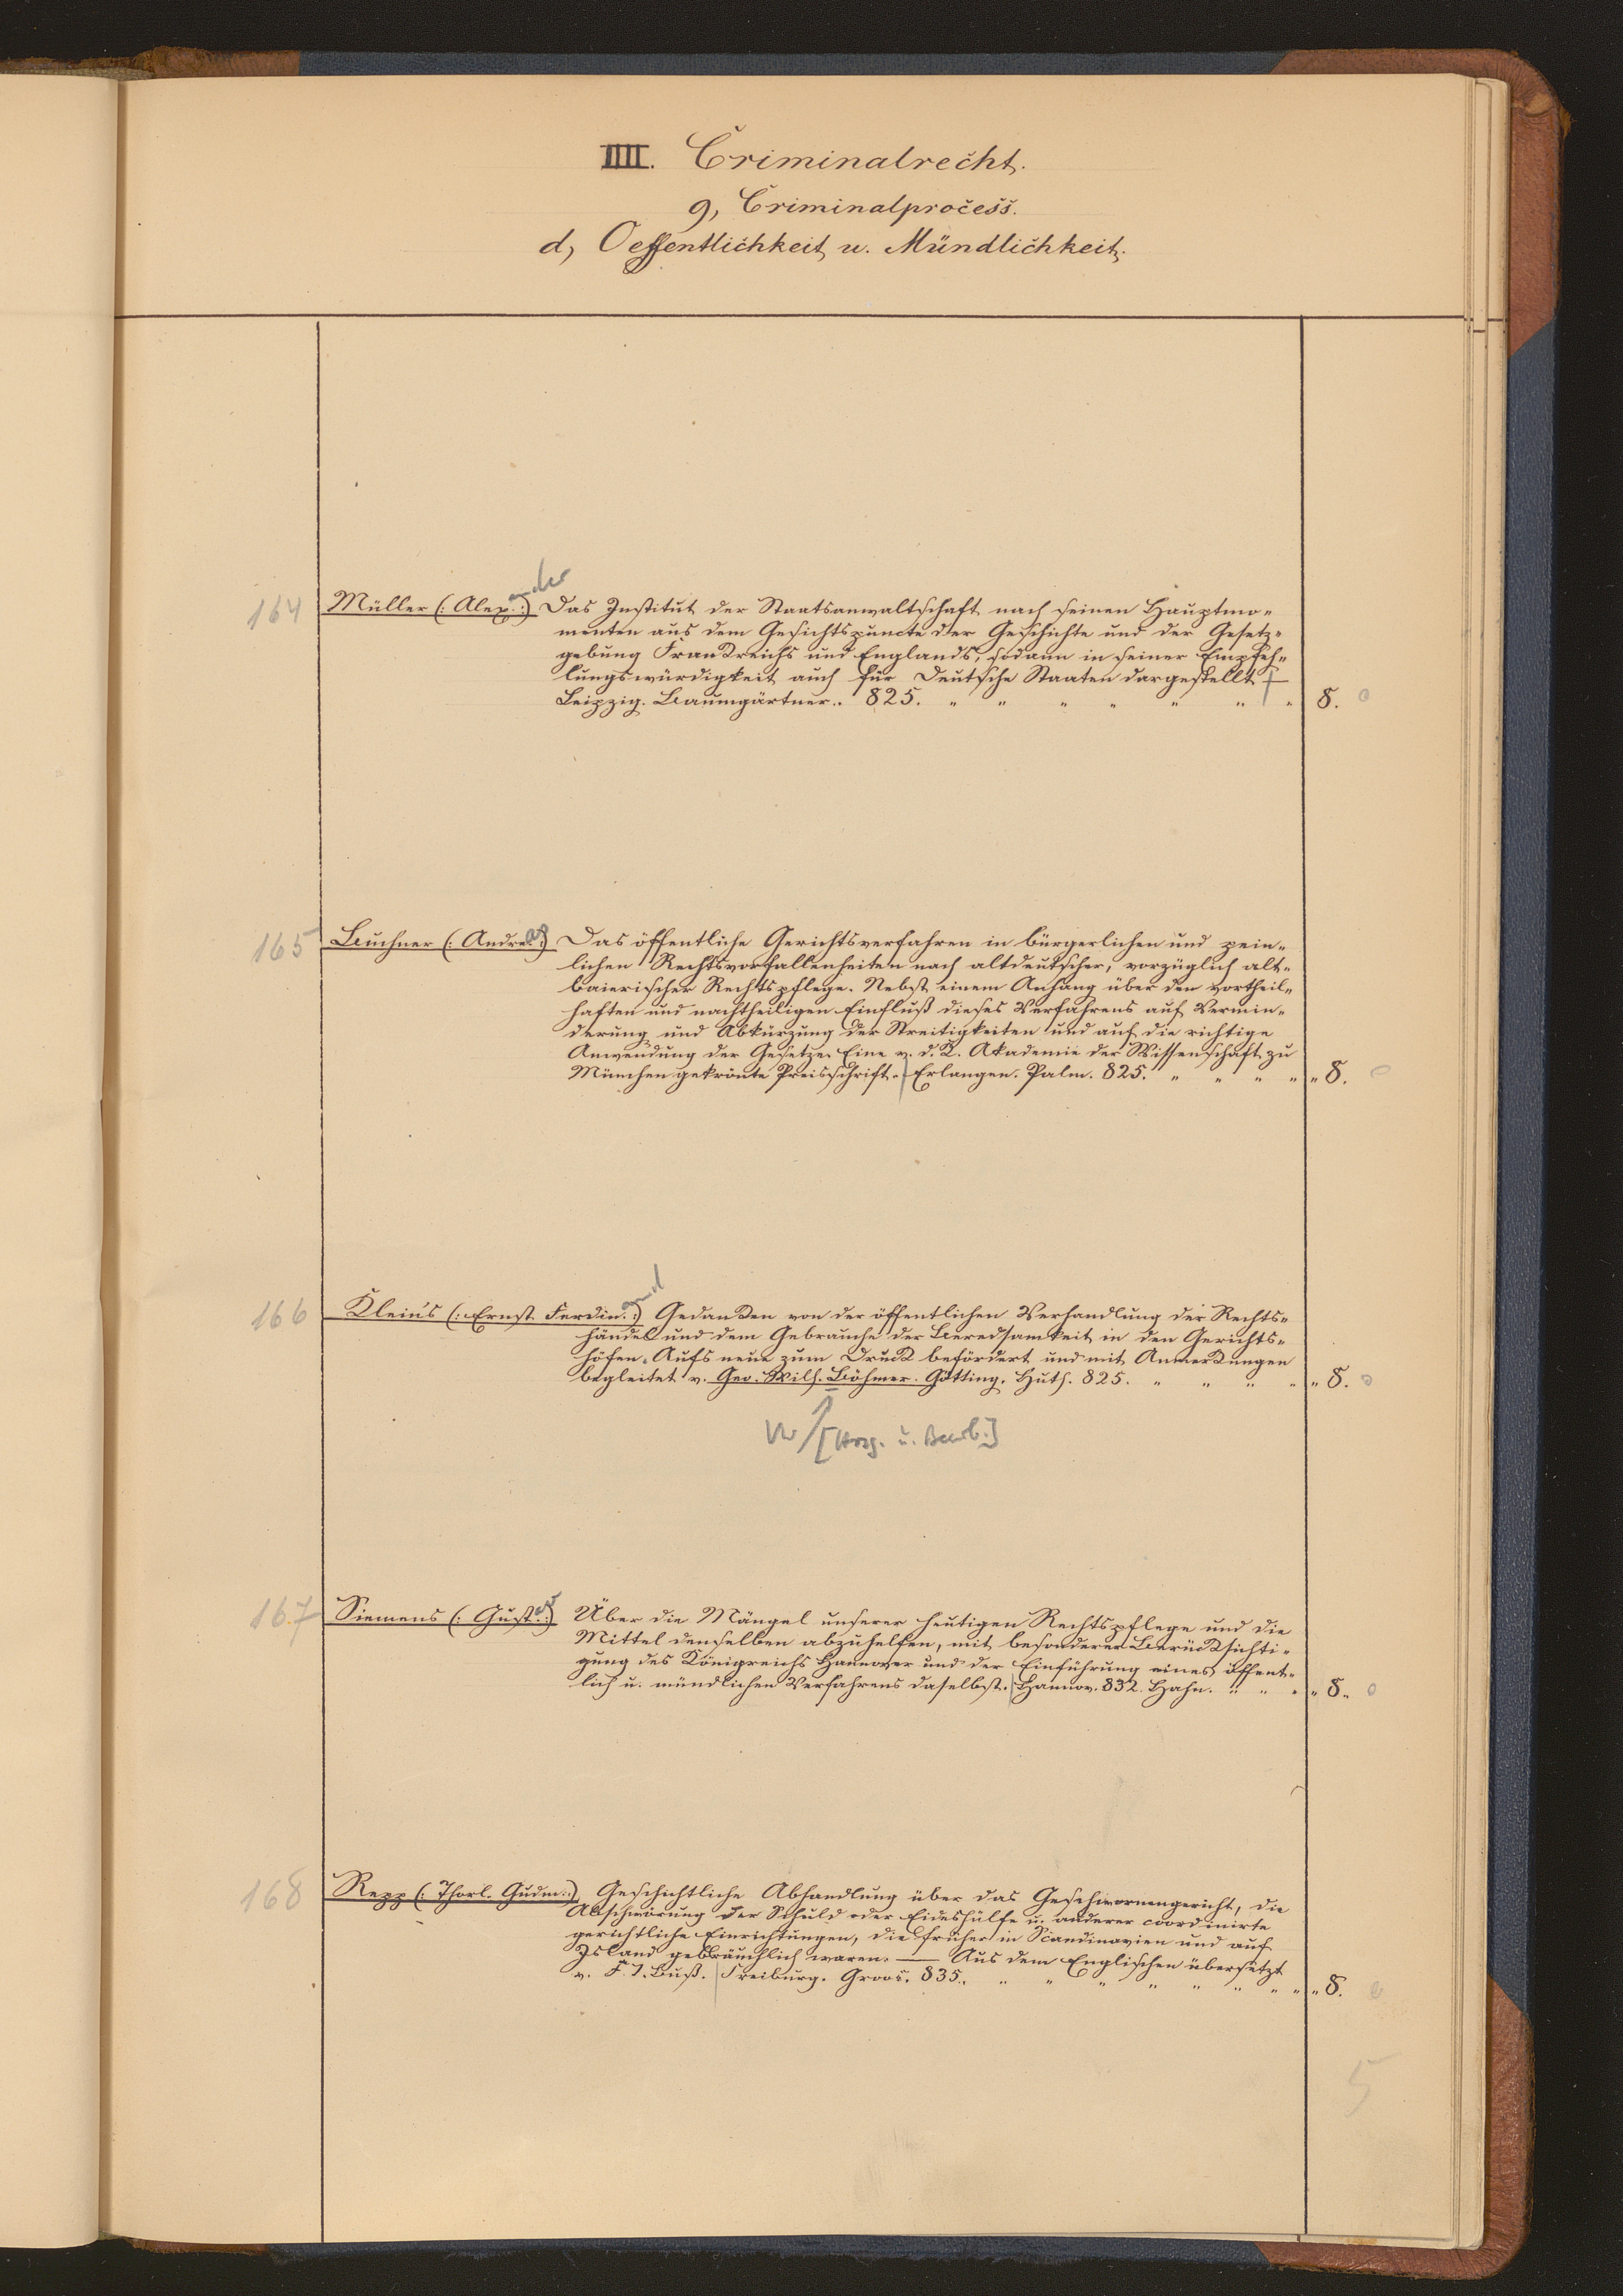 IIII. Criminalrecht.
g, Criminalprocess.
d, Oeffentlichkeit u. Mündlichkeit.
ander
164 Müller (: Alex. :) Das Institut der Staatsanwaltschaft nach seinen Hauptmo-
menten aus dem Gesichtspuncte der Geschichte und der Gesetz-
gebung Frankreichs und Englands, sodann in seiner Empfeh-
lungswürdigkeit auch für Deutsche Staaten dargestellt
Leipzig. Baumgärtner. 825. " " " " " " " 8. o
165 Buchner (: Andreas :) Das öffentliche Gerichtsverfahren in bürgerlichen und pein-
lichen Rechtsvorfallenheiten nach altdeutscher, vorzüglich alt-
baierischer Rechtspflege. Nebst einem Anhang über den vortheil-
haften und nachtheiligen Einfluß dieses Verfahrens auf Vermin-
derung und Abkürzung der Streitigkeiten und auf die richtige
Anwendung der Gesetze. Eine v. d. K. Akademie der Wissenschaft zu
München gekrönte Preisschrift. Erlangen. Palm. 825. " " " " " 8. o
and
166 Klein's (: Ernst Ferdin. :) Gedanken von der öffentlichen Verhandlung der Rechts-
händel und dem Gebrauche der Beredsamkeit in den Gerichts-
höfen. Aufs neue zum Druck befördert und mit Anmerkungen
begleitet v. Geo. Wilh. Böhmer. Götting. Huth. 825. " " " " " 8. o
Vw [Hrsg. u. Bearb.]
167 Siemens (: Gustav :) Über die Mängel unserer heutigen Rechtspflege und die
Mittel denselben abzuhelfen, mit besonderer Berücksichti-
gung des Königreichs Hannover und der Einführung eines öffent-
lich u. mündlichen Verfahrens daselbst. Hannov. 832. Hahn. " " " " 8. o
168 Repp (: Thorl. Gudm. :) Geschichtliche Abhandlung über das Geschwornengericht, die
Abschwörung der Schuld oder Eideshülfe u. anderer coordinirte
gerichtliche Einrichtungen, die früher in Scandinavien und auf
Island gebräuchlich waren. — Aus dem Englischen übersetzt
v. F. J. Buß. Freiburg. Groos. 835. " " " " " " " " " 8. o
5